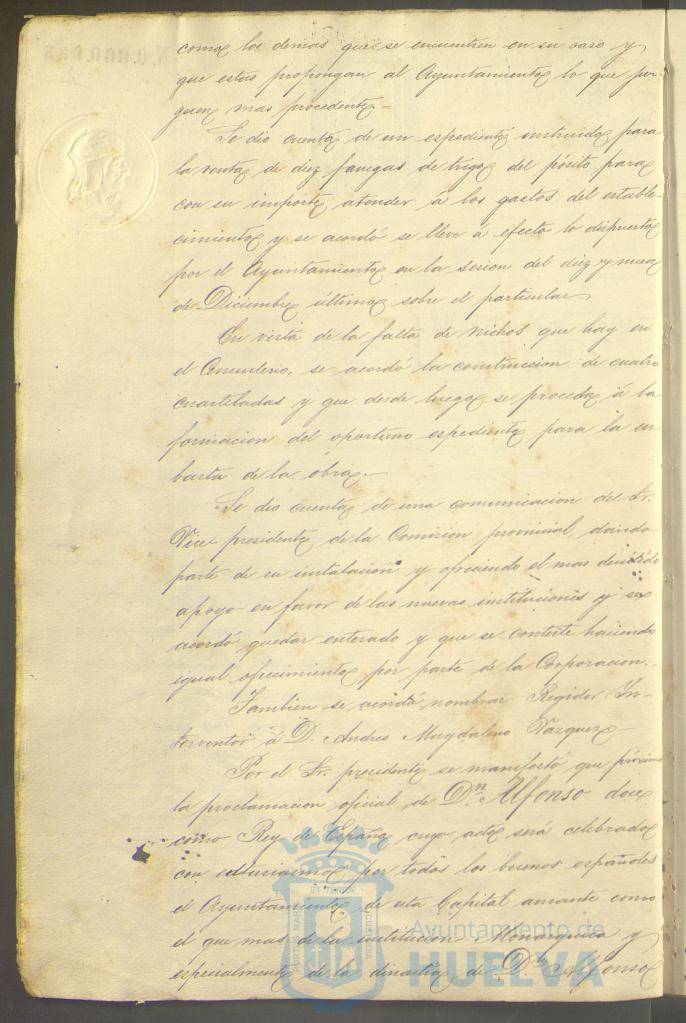 como los demas que se encuentren en su caso y
que estas propongan al Ayuntamiento lo que juz-
guen mas procedente.-
Se dio cuenta de un espediente instruido para
la venta de diez fanegas de trigo del pósito para
con su importe atender á los gastos del estable-
cimiento y se acordó se lleve a efecto lo dispuesto
por el Ayuntamiento en la sesion del diez y nueve
de Diciembre último sobre el particular
En vista de la falta de nichos que hay en
el Cementerio, se acordó la construccion de cuatro
cuarteladas y que desde luego se proceda á la
formacion del oportuno espediente para la su-
basta de la obra.-
Se dio cuenta de una comunicacion del Sr.
Vice presidente de la Comision provincial, dando
parte de su instalacion y ofreciendo el mas decidido
apoyo en favor de las nuevas instituciones y se
acordó quedar enterado y que se conteste haciendo
igual ofrecimiento por parte de la Corporacion.-
Tambien se acordó nombrar Regidor In-
terventor á D. Andres Magdaleno Vazquez-
Por el Sr. presidente se manifestó que próxima
la proclamacion oficial de Dn Alfonso doce
como Rey de España cuyo acto será celebrado
con entusiasmo por todos los buenos españoles
el Ayuntamiento de esta Capital amante como
el que mas de la institucion Monarquica y
especialmente de la dinastia de Dn Alfonso
PORTUS MARIS ET TERRÆ CUSTODIA
Ayuntamiento de
HUELVA